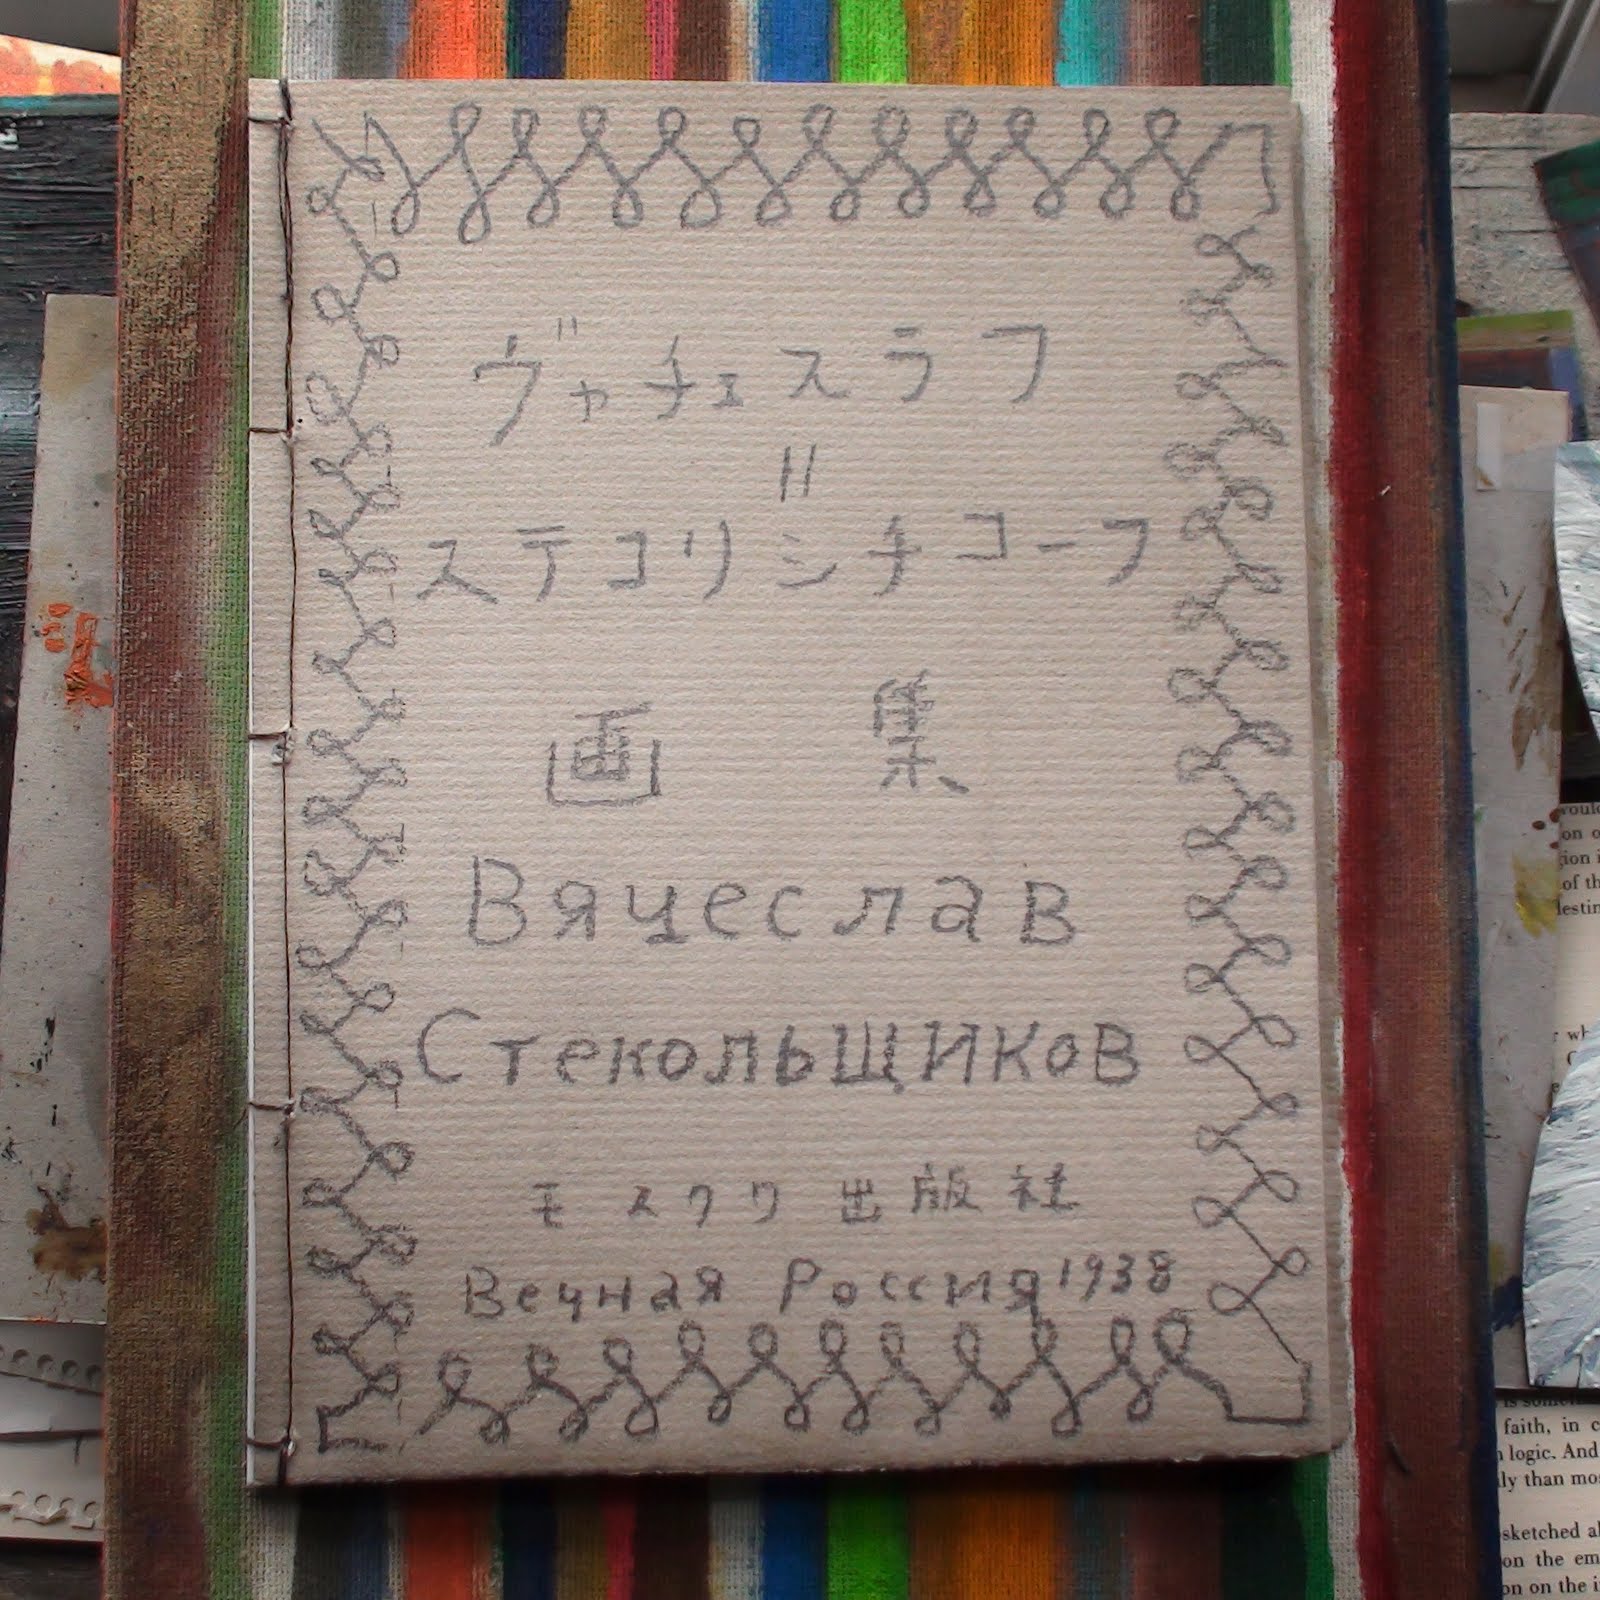 ヴャチェスラフ
=
ステコリシチコーフ
画集
Вячеслав
Стекольщиков
モスクワ出版社
Вечная Россия 1938
faith, in
logic. And
than
sketched
on the
on on the